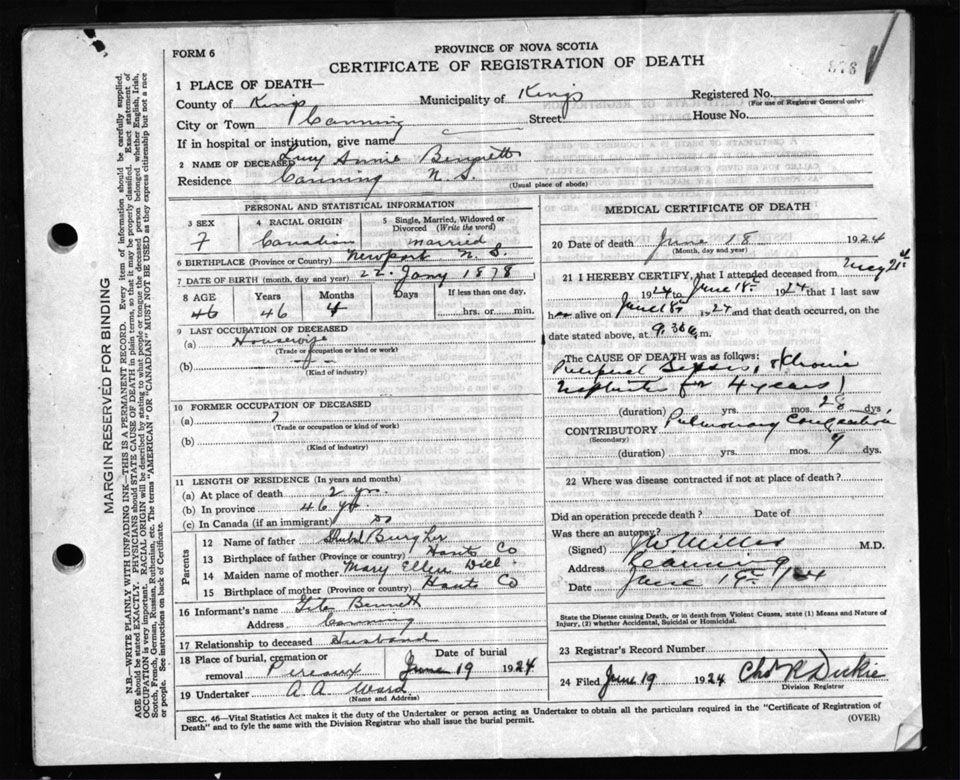 PROVINCE OF NOVA SCOTIA
FORM 6
CERTIFICATE OF REGISTRATION OF DEATH
878
1 PLACE OF DEATH—
County of Kings Municipality of Kings Registered No.
(For use of Registrar General only)
City or Town Canning Street House No.
If in hospital or institution, give name
2 NAME OF DECEASED Annie Bennett
Residence Canning N. S.
(Usual place of abode)
PERSONAL AND STATISTICAL INFORMATION
3 SEX 4 RACIAL ORIGIN 5 Single, Married, Widowed or Divorced (Write the word)
F Canadian Married
6 BIRTHPLACE (Province or Country) Newport N. S.
7 DATE OF BIRTH (month, day and year) 22 Jany 1878
8 AGE Years Months Days If less than one day,
46 46 4 hrs. or min.
9 LAST OCCUPATION OF DECEASED
(a) Housewife
(Trade or occupation or kind or work)
(b)
(Kind of industry)
10 FORMER OCCUPATION OF DECEASED
(a)
(Trade or occupation or kind of work)
(b)
(Kind of industry)
11 LENGTH OF RESIDENCE (In years and months)
(a) At place of death 2 yrs.
(b) In province 46 yrs
(c) In Canada (if an immigrant) Do
Parents
12 Name of father Burgher
13 Birthplace of father (Province or country) Hants Co
14 Maiden name of mother Mary Ellen
15 Birthplace of mother (Province or country) Hants Co
16 Informant's name Bennett
Address Canning
17 Relationship to deceased Husband
18 Place of burial, cremation or removal Pereaux Date of burial June 19 1924
19 Undertaker A A Ward
(Name and Address)
MEDICAL CERTIFICATE OF DEATH
20 Date of death June 18 1924
(Month, day and year)
21 I HEREBY CERTIFY, that I attended deceased from May 21st
1924 to June 18th 1924 that I last saw
her alive on June 18th 1924 and that death occurred, on the
date stated above, at 9.30 m.
The CAUSE OF DEATH was as follows:
Puerperal Sepsis, & Chronic
Nephritis for 4 years)
(duration) yrs. mos. 28 dys.
CONTRIBUTORY Pulmonary Congestion
(Secondary)
(duration) yrs. mos. dys.
22 Where was disease contracted if not at place of death?
Did an operation precede death? Date of
Was there an autopsy?
(Signed) Miller M.D.
Address Canning
Date June 19th /24
State the Disease causing Death, or in death from Violent Causes, state (1) Means and Nature of
Injury, (2) whether Accidental, Suicidal or Homicidal.
23 Registrar's Record Number
24 Filed June 19 1924 Chas R Dickie
Division Registrar
SEC. 46—Vital Statistics Act makes it the duty of the Undertaker or person acting as Undertaker to obtain all the particulars required in the "Certificate of Registration of
Death" and to fyle the same with the Division Registrar who shall issue the burial permit.
(OVER)
MARGIN RESERVED FOR BINDING
N.B.—WRITE PLAINLY WITH UNFADING INK—THIS IS A PERMANENT RECORD. Every item of information should be carefully supplied.
AGE should be stated EXACTLY. PHYSICIANS should STATE CAUSE OF DEATH in plain terms, so that it may be properly classified. Exact statement of
OCCUPATION is very important. RACIAL ORIGIN will be described by stating to what people or tongue the deceased person belonged whether English, Irish,
Scotch, French, German, Russian, Ruthenian, etc. The terms "AMERICAN" OR "CANADIAN" MUST NOT BE USED as they express citizenship but not a race
or people. See instructions on back of Certificate.